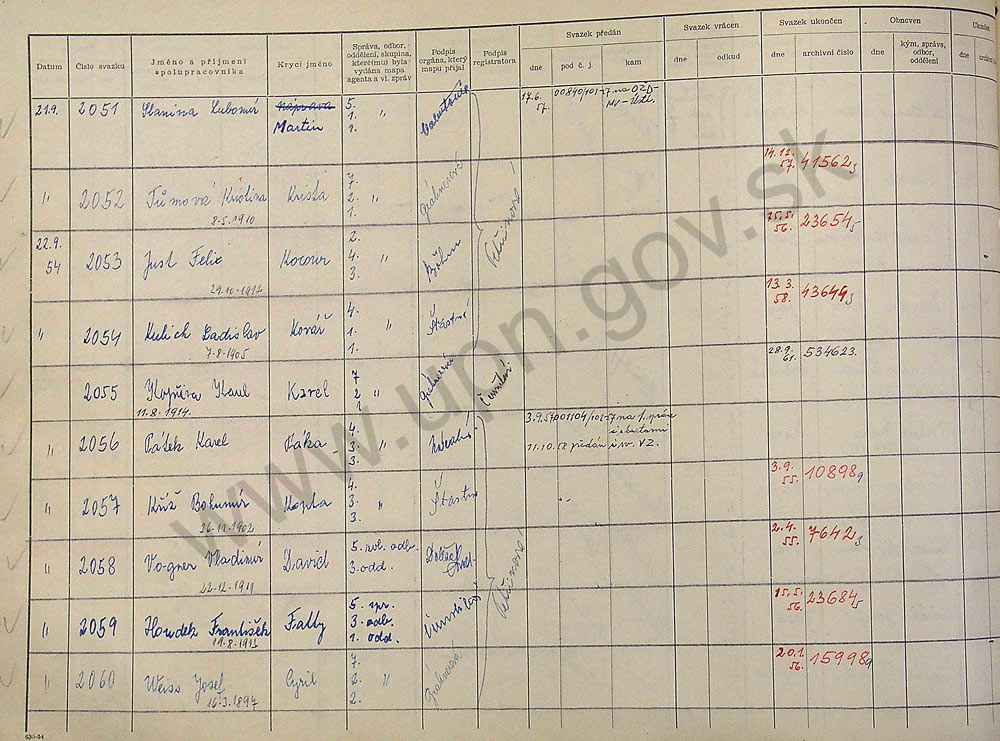 Datum
Číslo svazku
Jméno a příjmení spolupracovníka
Krycí jméno
Správa, odbor, oddělení, skupina, které(mu) byla vydána mapa agenta a vl. zpráv
Podpis orgána, který mapu přijal
Podpis registratora
Svazek předán
dne
pod č. j.
kam
Svazek vrácen
dne
odkud
Svazek ukončen
dne
archivní číslo
Obnoven
dne
kým, správa, odbor, oddělení
Ukončen
dne
21.9. 2051 Stanina Lubomír náprava 5. 17.6. 00840/101-57 na OZD-
Martin 1. " 57. MV-Ústí.
2.
14.12. 57. 41562/3
" 2052 Tůmová Kristina Krista 7. 2. " 1. Grábnerová
8.5.1910
25.5. 56. 23654/5
22.9. 54 2053 Just Felix Kocour 2. 4. " 3. Böhm
29.10.1912
13.3. 58. 43644/3
" 2054 Kulich Ladislav Kovář 4. 1. " 1. Šťastný
7.8.1905
28.9. 61. 534623.
2055 Karel 7 2 " 1 Grábnerová
11.8.1914.
" 2056 Pátek Karel Páka 4. 3. " 3. 3.9.57 001104/101-57 na 1. správu
11.10.58 předán
3.9. 55. 10898/9
" 2057 Kříž Bohumír Kopta 4. 3. " 3. Šťastný
26.11.1902
2.4. 55. 7642/3
" 2058 Vogner Vladimír David 5. zvl. odb.
22.12.1911 3. odd.
15.5. 56. 23684/5
" 2059 Houdek František Fally 5. spr.
19.8.1913 3. odb.
1. odd.
20.1. 56. 15998/9
" 2060 Weiss Josef Cyril 7. 2. " 2. Grábnerová
16.3.1897
630-54
www.upn.gov.sk